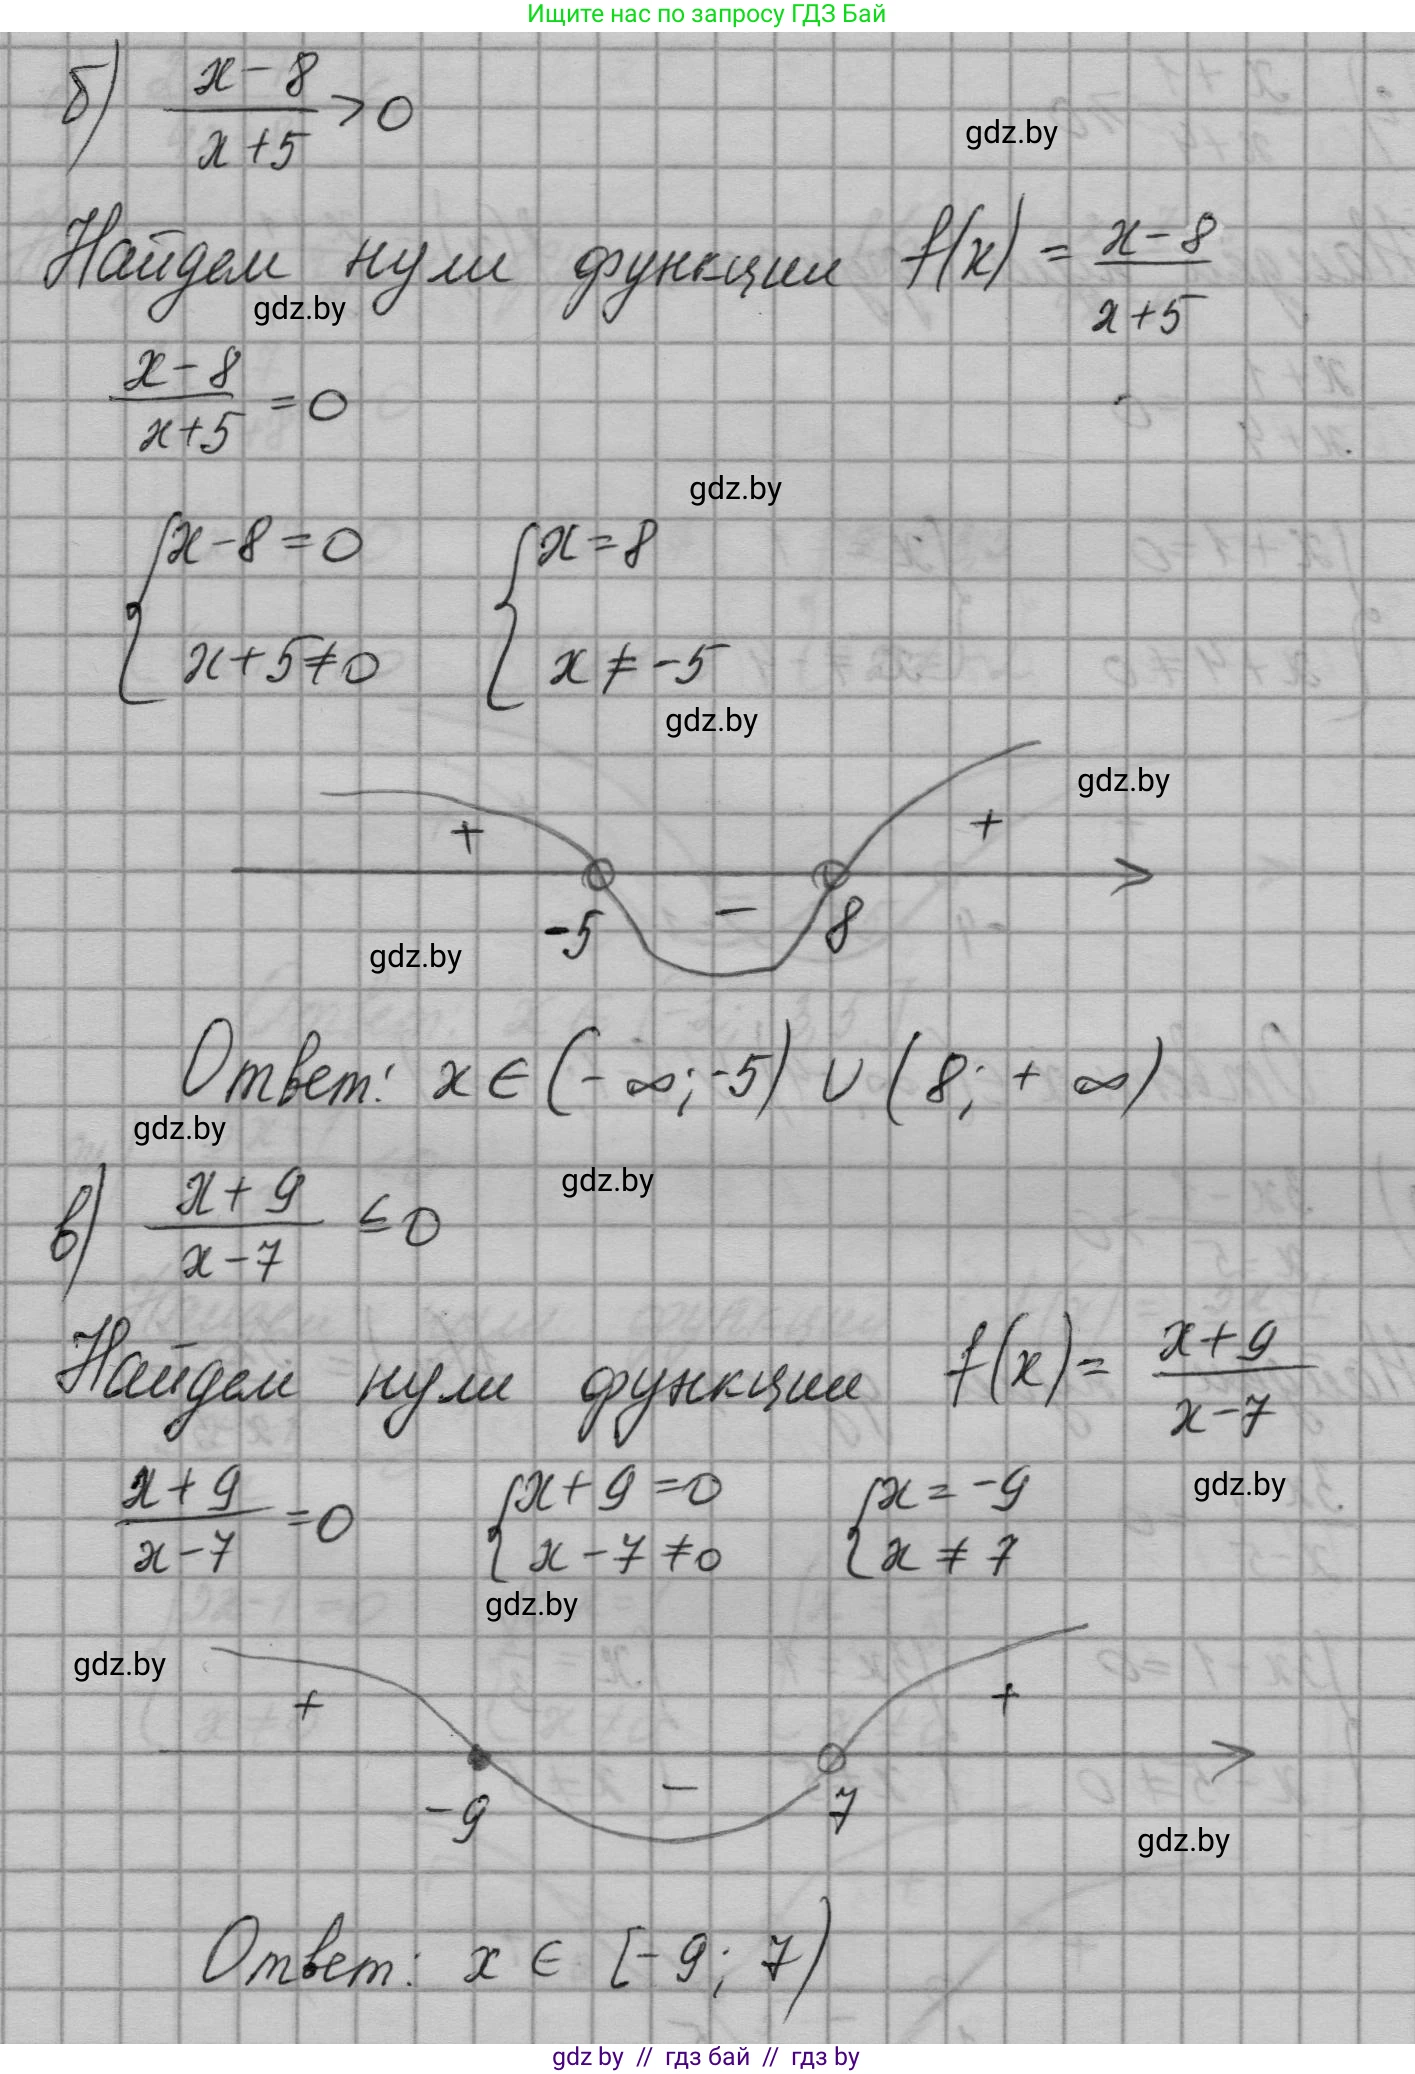 Ищите нас по запросу ГДЗ Бай
б) (x-8)/(x+5) > 0
gdz.by
Найдем нули функции f(x) = (x-8)/(x+5)
gdz.by
(x-8)/(x+5) = 0
gdz.by
{x-8=0 {x=8
x+5≠0 x≠-5
gdz.by
gdz.by
+ +
-5 − 8
gdz.by
Ответ: x∈(-∞;-5)∪(8;+∞)
gdz.by
gdz.by
в) (x+9)/(x-7) ≤ 0
Найдем нули функции f(x) = (x+9)/(x-7)
gdz.by
(x+9)/(x-7) = 0 {x+9=0 {x=-9
x-7≠0 x≠7
gdz.by
gdz.by
+ +
-9 − 7
gdz.by
Ответ: x∈[-9;7)
gdz by // гдз бай // гдз by